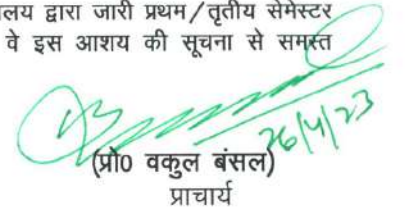 लय द्वारा जारी प्रथम/तृतीय सेमेस्टर
वे इस आशय की सूचना से समस्त
26/4/23
(प्रो0 वकुल बंसल)
प्राचार्य